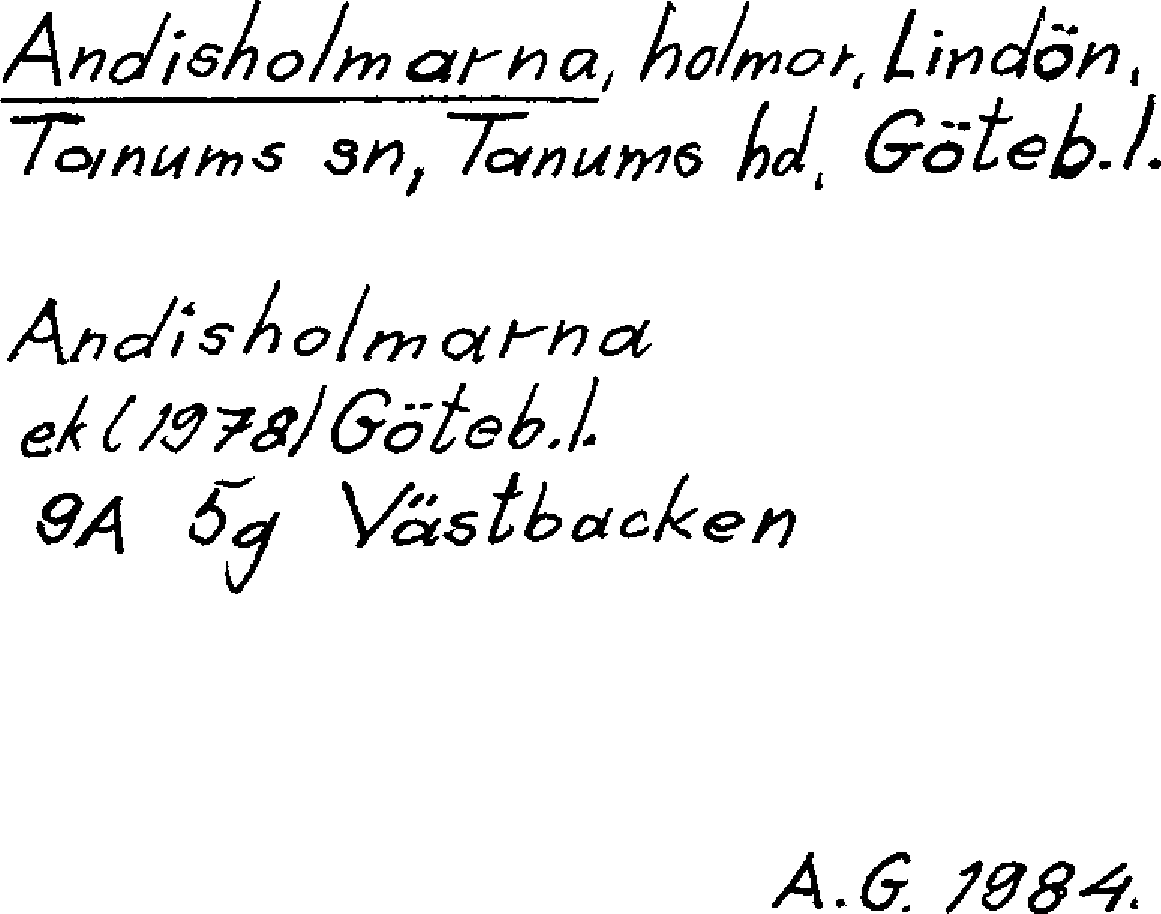 Andisholmarna, holmar, Lindön,
Tanums sn, Tanums hd, Göteb.l.
Andisholmarna
ek (1978) Göteb.l.
9A 5g Västbacken
A.G. 1984.